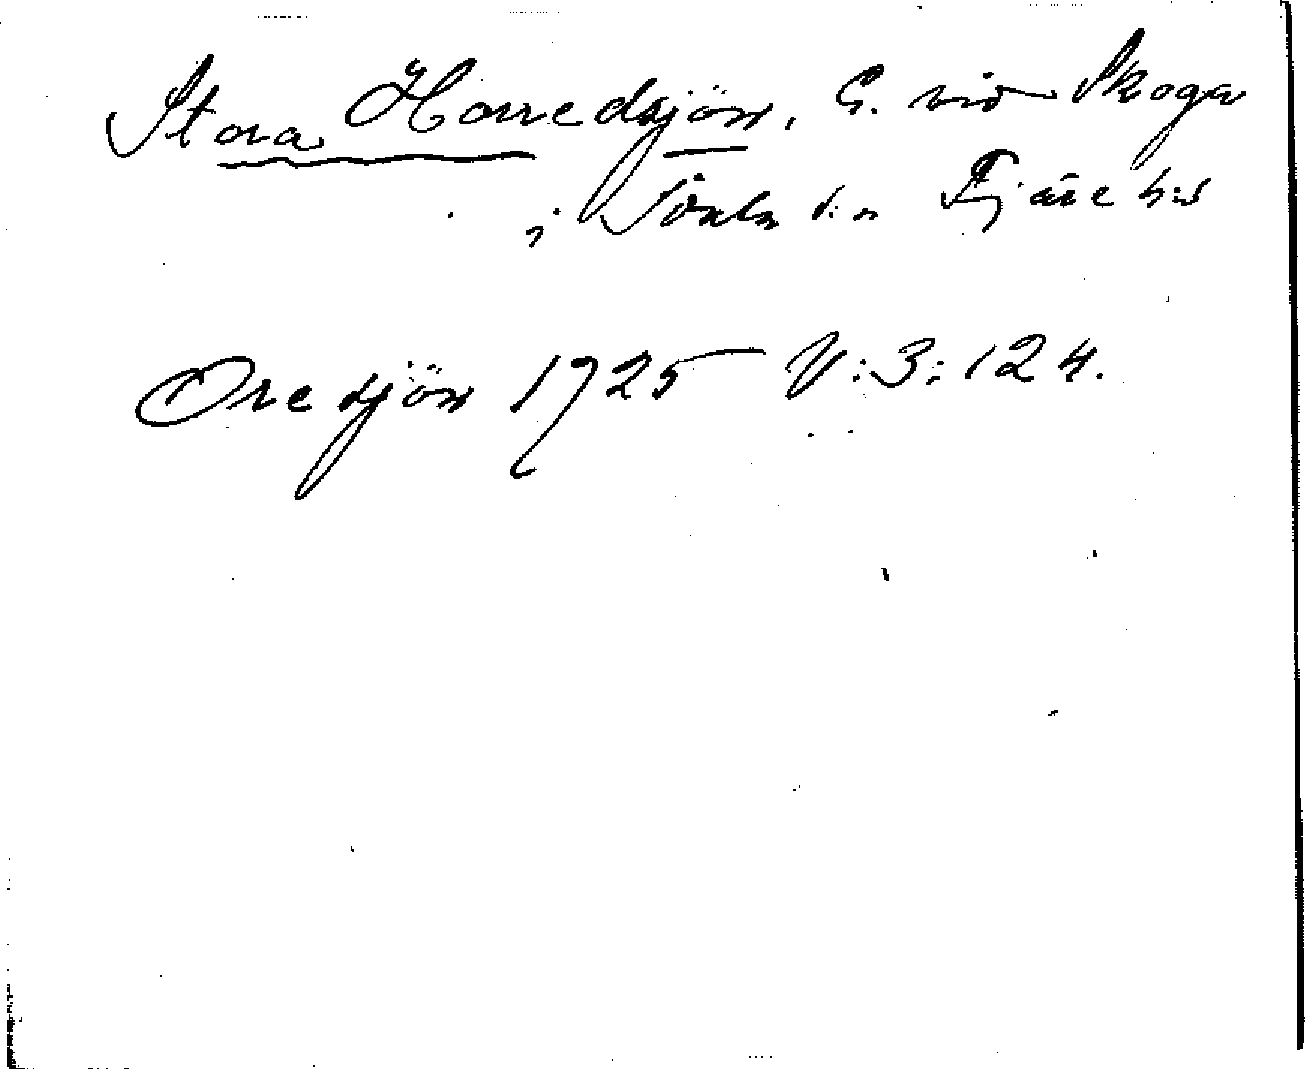 Stora Horredsjön, G. vid Skoga
i Förlanda s:n Fjäre h:d
Oredsjön 1725 V:3:124.